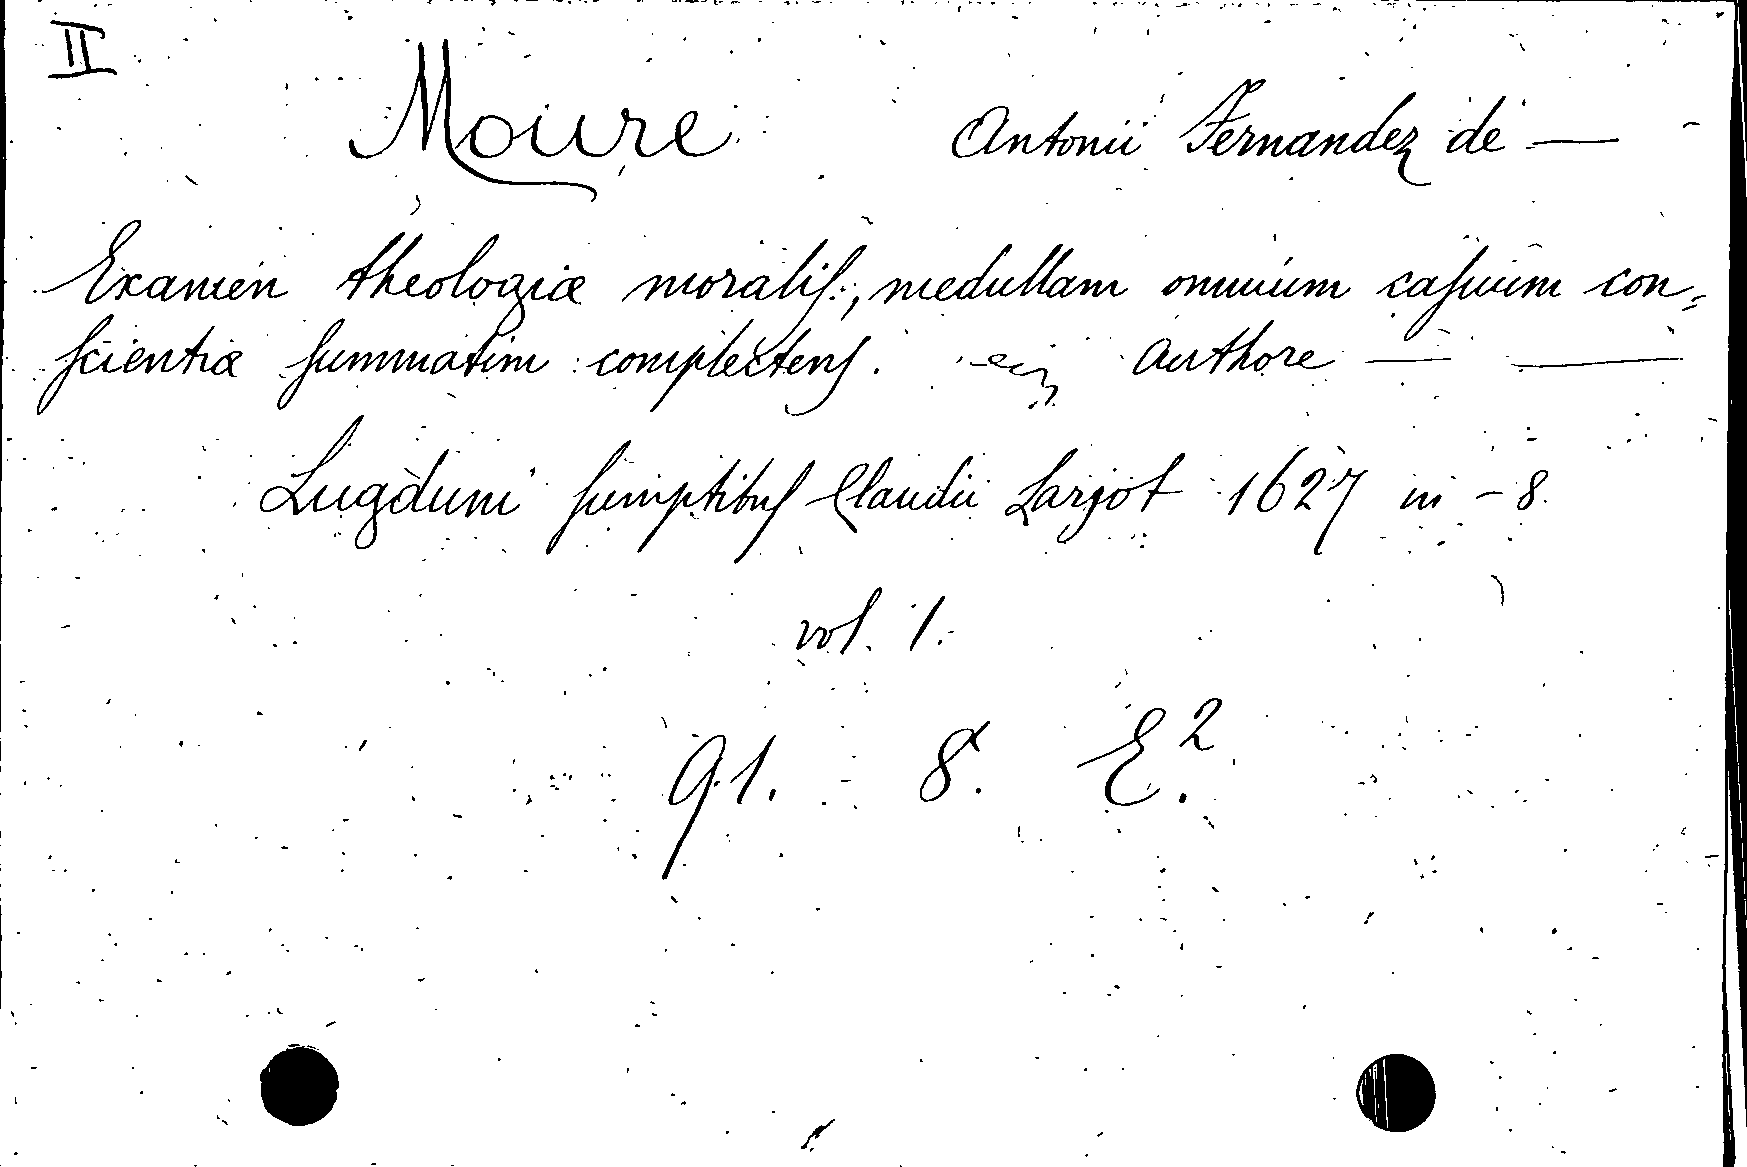 II
Moure Antonii Fernandez de —
Examen theologiæ moralis, medullam omnium casuum con=
scientiæ summatim complectens. Authore — —
Lugduni sumptibus Claudii Larjot 1627 in - 8.
vol. 1.
91. 8. E.²